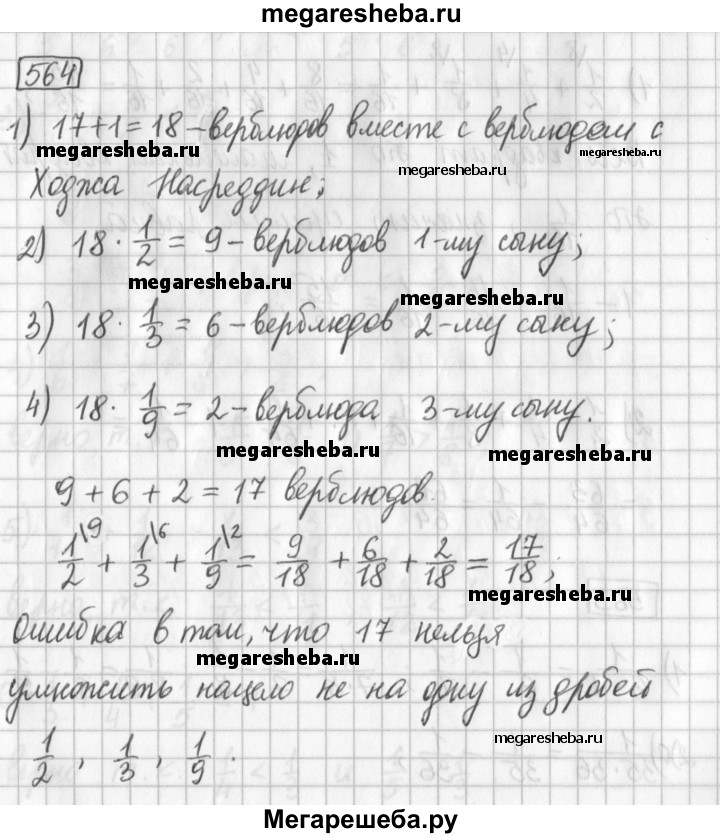 megaresheba.ru
564
1) 17+1=18 – верблюдов вместе с верблюдом с
megaresheba.ru megaresheba.ru megaresheba.ru
Ходжа Насреддин;
2) 18 · 1/2 = 9 – верблюдов 1-му сыну;
megaresheba.ru megaresheba.ru
3) 18 · 1/3 = 6 – верблюдов 2-му сыну;
4) 18 · 1/9 = 2 – верблюда 3-му сыну.
megaresheba.ru megaresheba.ru
9 + 6 + 2 = 17 верблюдов.
1/2\9 + 1/3\6 + 1/9\2 = 9/18 + 6/18 + 2/18 = 17/18;
megaresheba.ru
Ошибка в том, что 17 нельзя
megaresheba.ru
умножить нацело не на одну из дробей
1/2, 1/3, 1/9.
megaresheba.ru
Мегарешеба.ру